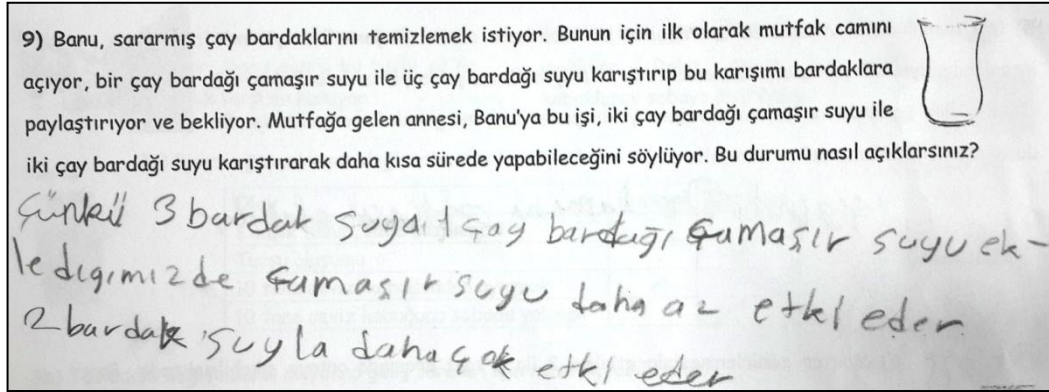 9) Banu, sararmış çay bardaklarını temizlemek istiyor. Bunun için ilk olarak mutfak camını
açıyor, bir çay bardağı çamaşır suyu ile üç çay bardağı suyu karıştırıp bu karışımı bardaklara
paylaştırıyor ve bekliyor. Mutfağa gelen annesi, Banu'ya bu işi, iki çay bardağı çamaşır suyu ile
iki çay bardağı suyu karıştırarak daha kısa sürede yapabileceğini söylüyor. Bu durumu nasıl açıklarsınız?
Çünkü 3 bardak suya 1 çay bardağı çamaşır suyu ek-
ledigimizde çamaşır suyu daha az etki eder
2 bardak suyla daha çok etki eder